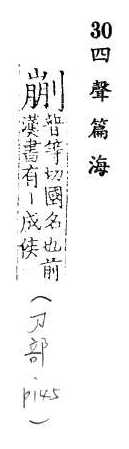 30四聲篇海
剻
普等切國名也前
漢書有丨成侯
(刀部.p145)